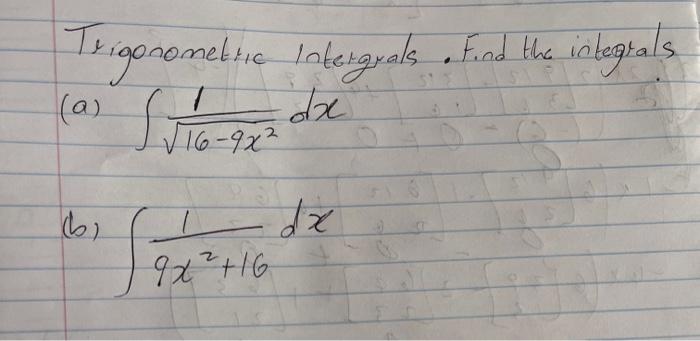 Trigonometric Intergrals. Find the integrals
(a) ∫ 1/√(16-9x²) dx
(b) ∫ 1/(9x²+16) dx